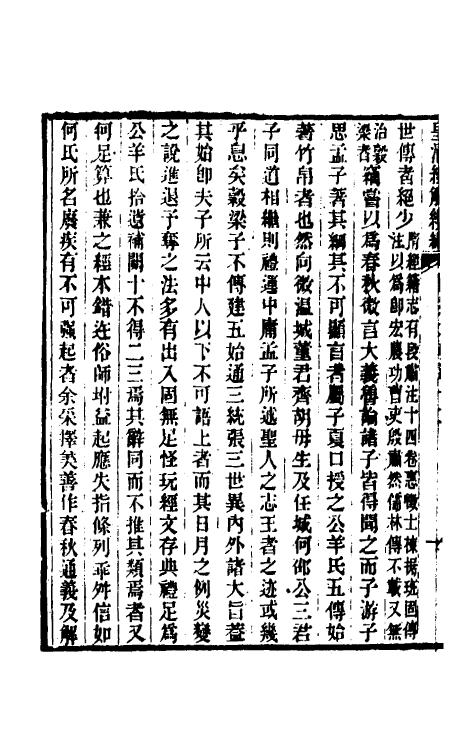 皇清經解續編
世傳者絕少隋經籍志有段肅注十四卷惠徵士棟據班固傳
注以爲卽宏農功曹史段肅然儒林傳不載又無
治穀
梁者竊嘗以爲春秋微言大義穪論諸子皆得聞之而子游子
思孟子著其綱其不可顯言者屬子夏口授之公羊氏五傳始
著竹帛者也然向微溫城董君齊胡毋生及任城何邵公三君
子同道相繼則禮運中庸孟子所述聖人之志王者之迹或幾
乎息矣穀梁子不傳建五始通三統張三世異內外諸大旨蓋
其始卽夫子所云中人以下不可語上者而其日月之例災變
之說進退予奪之法多有出入固無足怪玩經文存典禮足爲
公羊氏拾遺補闕十不得二三焉其辭同而不推其類焉者又
何足算也兼之經本錯迕俗師坿益起應失指條列乖舛信如
何氏所名廢疾有不可彊起者余采擇美善作春秋通義及解